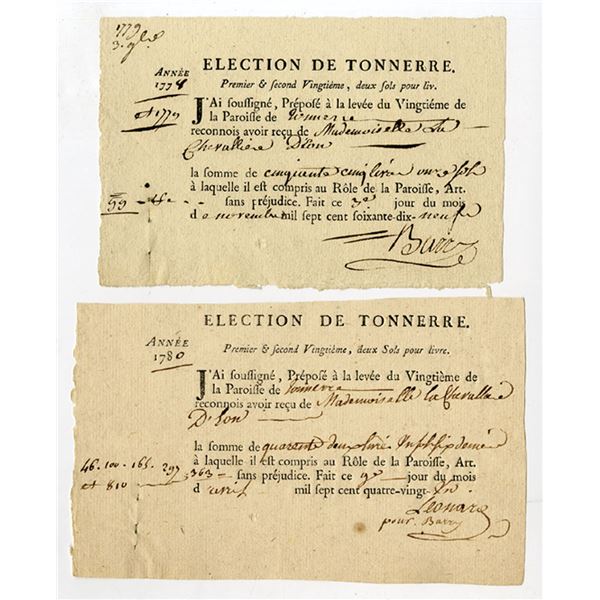 1779
3. 9bre
ELECTION DE TONNERRE.
ANNÉE
1778
et 1779
Premier & second Vingtième, deux sols pour liv.
J'Ai soussigné, Préposé à la levée du Vingtiéme de
la Paroisse de tonnerre
reconnois avoir reçu de Mademoiselle La
Chevalliere D'Eon
la somme de cinquante cinq livres onze sols
à laquelle il est compris au Rôle de la Paroisse, Art.
55 sans préjudice. Fait ce 3e jour du mois
de novembre mil sept cent soixante-dix-neuf
Barry
ELECTION DE TONNERRE.
ANNÉE
1780
Premier & second Vingtième, deux Sols pour livre.
J'Ai soussigné, Préposé à la levée du Vingtième de
la Paroisse de tonnerre
reconnois avoir reçu de Mademoiselle la Chevalliere
D'Eon
la somme de quarente deux livres
à laquelle il est compris au Rôle de la Paroisse, Art.
46. 100. 165. 297 363 sans préjudice. Fait ce 9e jour du mois
et 810
d'avril mil sept cent quatre-vingt un.
Leonard
pour Barry